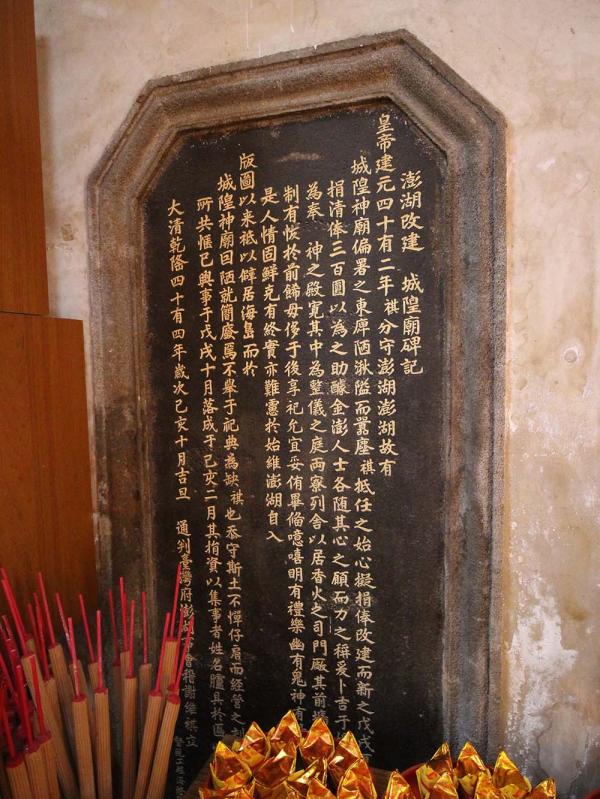 澎湖改建　城隍廟碑記
皇帝建元四十有二年祺分守澎湖澎湖故有
城隍神廟偏署之東庳陋湫隘而囂塵祺抵任之始心擬捐俸改建而新之戊戌
捐清俸三百圓以為之助醵金澎人士各随其心之願而力之稱爰卜吉于
為奉　神之殿寬其中為整儀之庭兩寮列舍以居香火之司門廠其前
制有恢於前餙毋侈于後享祀允宜妥侑畢偹噫嘻明有禮樂幽有鬼神有
是人情固鮮克有終實亦難慮於始維澎湖自入
版圖以来祗以僻居海島而於
城隍神廟因陋就簡廢焉不舉于祀典為缺祺也忝守斯土不憚仔肩而經營之
所共愜已興事于戊戌十月落成于己亥二月其捐資以集事者姓名臚具於匾
大清乾隆四十有四年歲次己亥十月吉旦　通判臺灣府澎湖　會稽謝維祺立